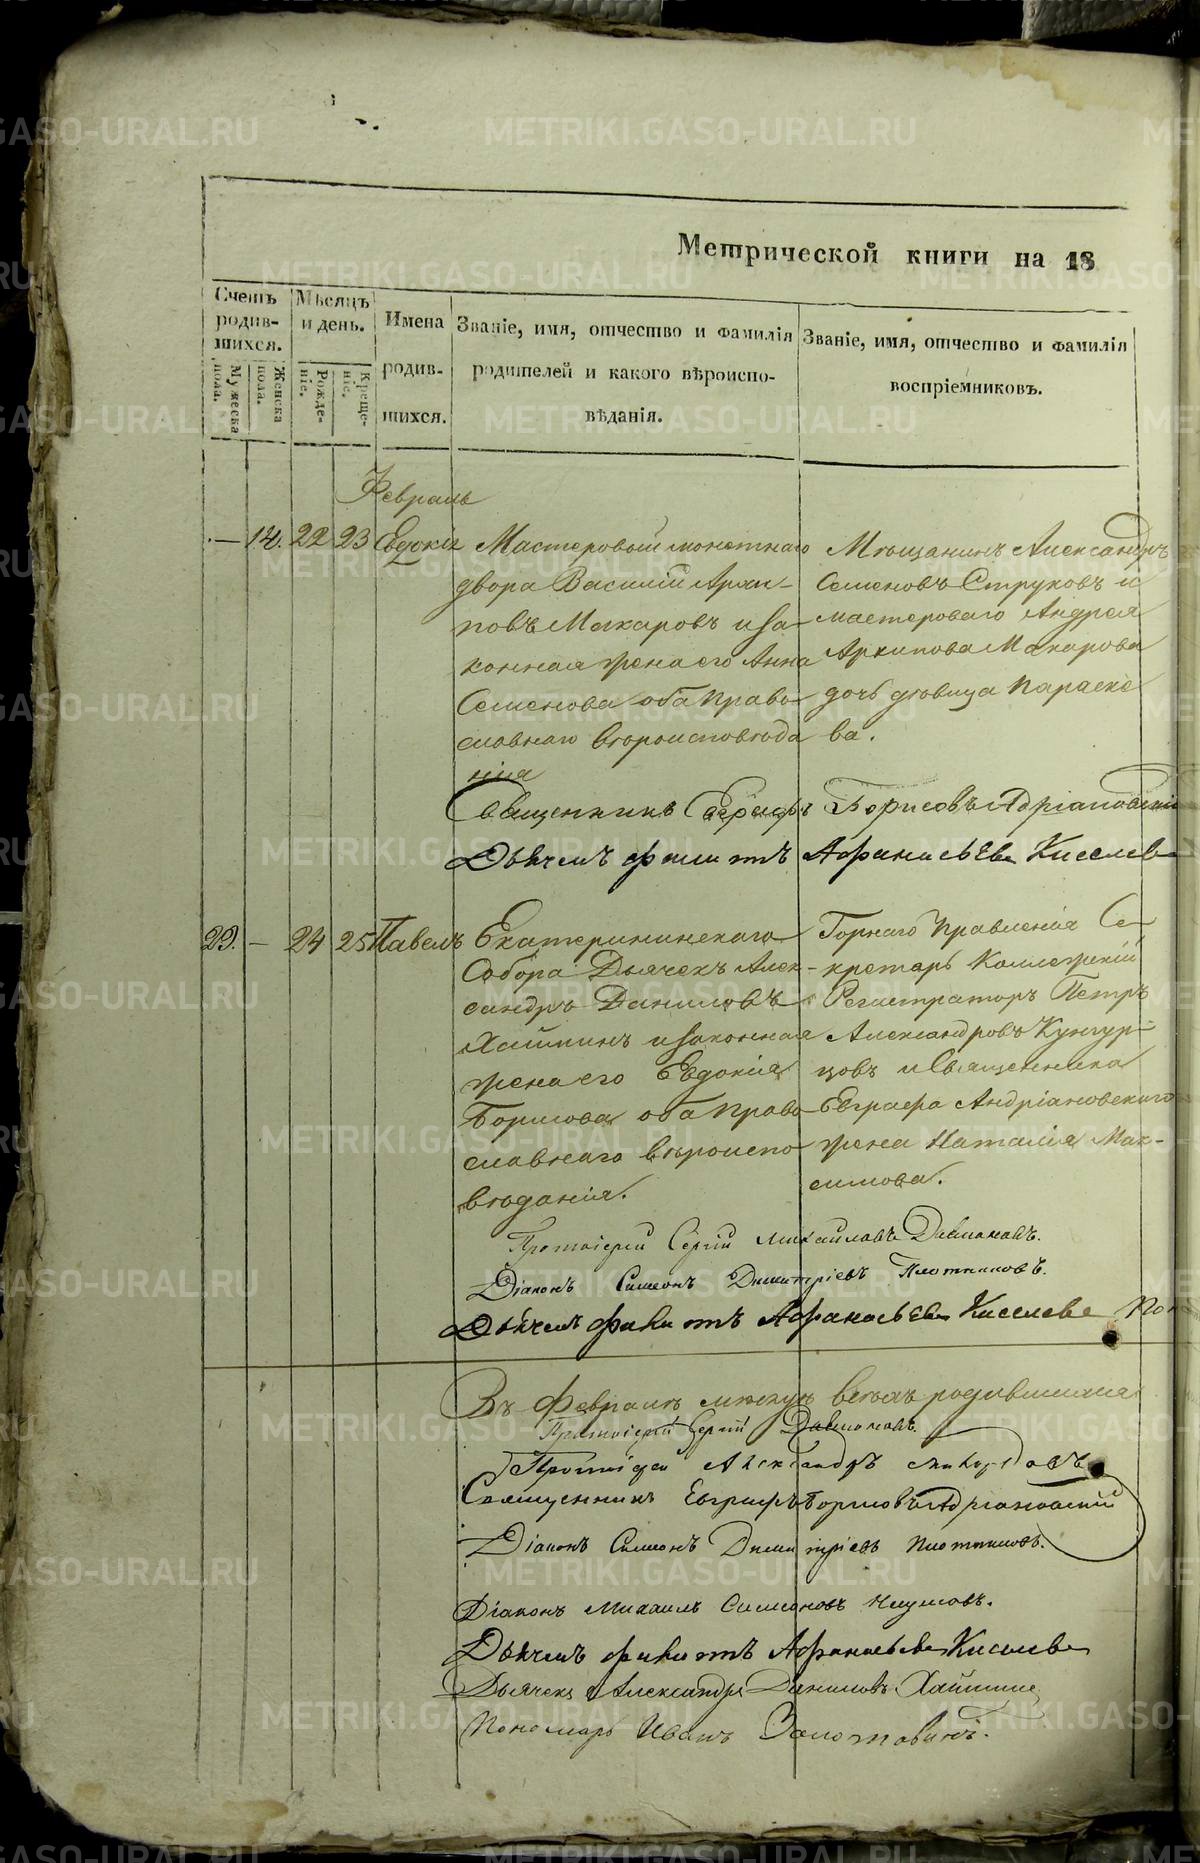 Метрической книги на 18
Счетъ родив-шихся.
Мужеска пола.
Женска пола.
Мѣсяцъ и день.
Рожде-ніе.
Креще-ніе.
Имена родив-шихся.
Званіе, имя, отчество и фамилія
родителей и какого вѣроиспо-
вѣданія.
Званіе, имя, отчество и фамилія
воспріемниковъ.
Февраль
— 14. 22 23 Евдокія
Мастеровой монетнаго
двора Василій Архи-
повъ Макаровъ и за-
конная жена его Анна
Семенова оба право-
славнаго вѣроисповѣда
нія
Мѣщанинъ Александръ
Семеновъ Струковъ и
мастероваго Андрея
Архипова Макарова
дочь дѣвица Параске
ва.
Священникъ Евграфъ Борисовъ Адріановскій
Дьячекъ Филитъ Афанасьевъ Киселевъ
29. — 24 25 Павелъ
Екатерининскаго
Собора Дьячекъ Алек-
сандръ Даниловъ
Хаминъ и законная
жена его Евдокія
Борисова оба право-
славнаго вѣроиспо
вѣданія.
Горнаго Правленія Се-
кретарь Коллежскій
Регистраторъ Петръ
Александровъ Кунгур-
цовъ и Священника
Евграфа Андріановскаго
жена Наталія Мак-
симова.
Протоіерей Сергій Михайловъ
Діаконъ Симеонъ Димитріевъ Плотниковъ.
Дьячекъ Филитъ Афанасьевъ Киселевъ
Въ Февралѣ мѣсяцѣ всѣхъ родившихся
Протоіерей Сергій
Протоіерей Александръ
Священникъ Евграфъ Борисовъ Адріановскій
Діаконъ Симеонъ Димитріевъ Плотниковъ.
Діаконъ Михаилъ Симеоновъ
Дьячекъ Филитъ Афанасьевъ Киселевъ
Дьячекъ Александръ Даниловъ Хаминъ
Пономарь Иванъ Золотавинъ.
METRIKI.GASO-URAL.RU